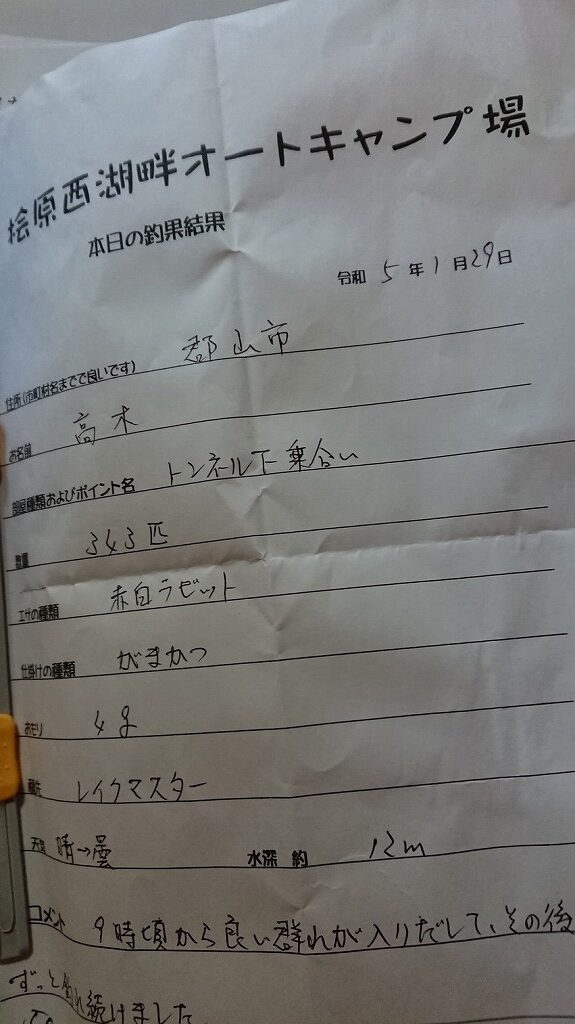 桧原西湖畔オートキャンプ場
本日の釣果結果
令和 5 年 1 月 29 日
住所(市町村名までで良いです) 郡山市
お名前 高木
部屋種類およびポイント名 トンネル下乗合い
数量 343匹
エサの種類 赤白ラビット
仕掛けの種類 がまかつ
おもり 4g
レイクマスター
天気 晴→曇 水深 約 12m
コメント 9時頃から良い群れが入りだして、その後
ずっと釣れ続けました